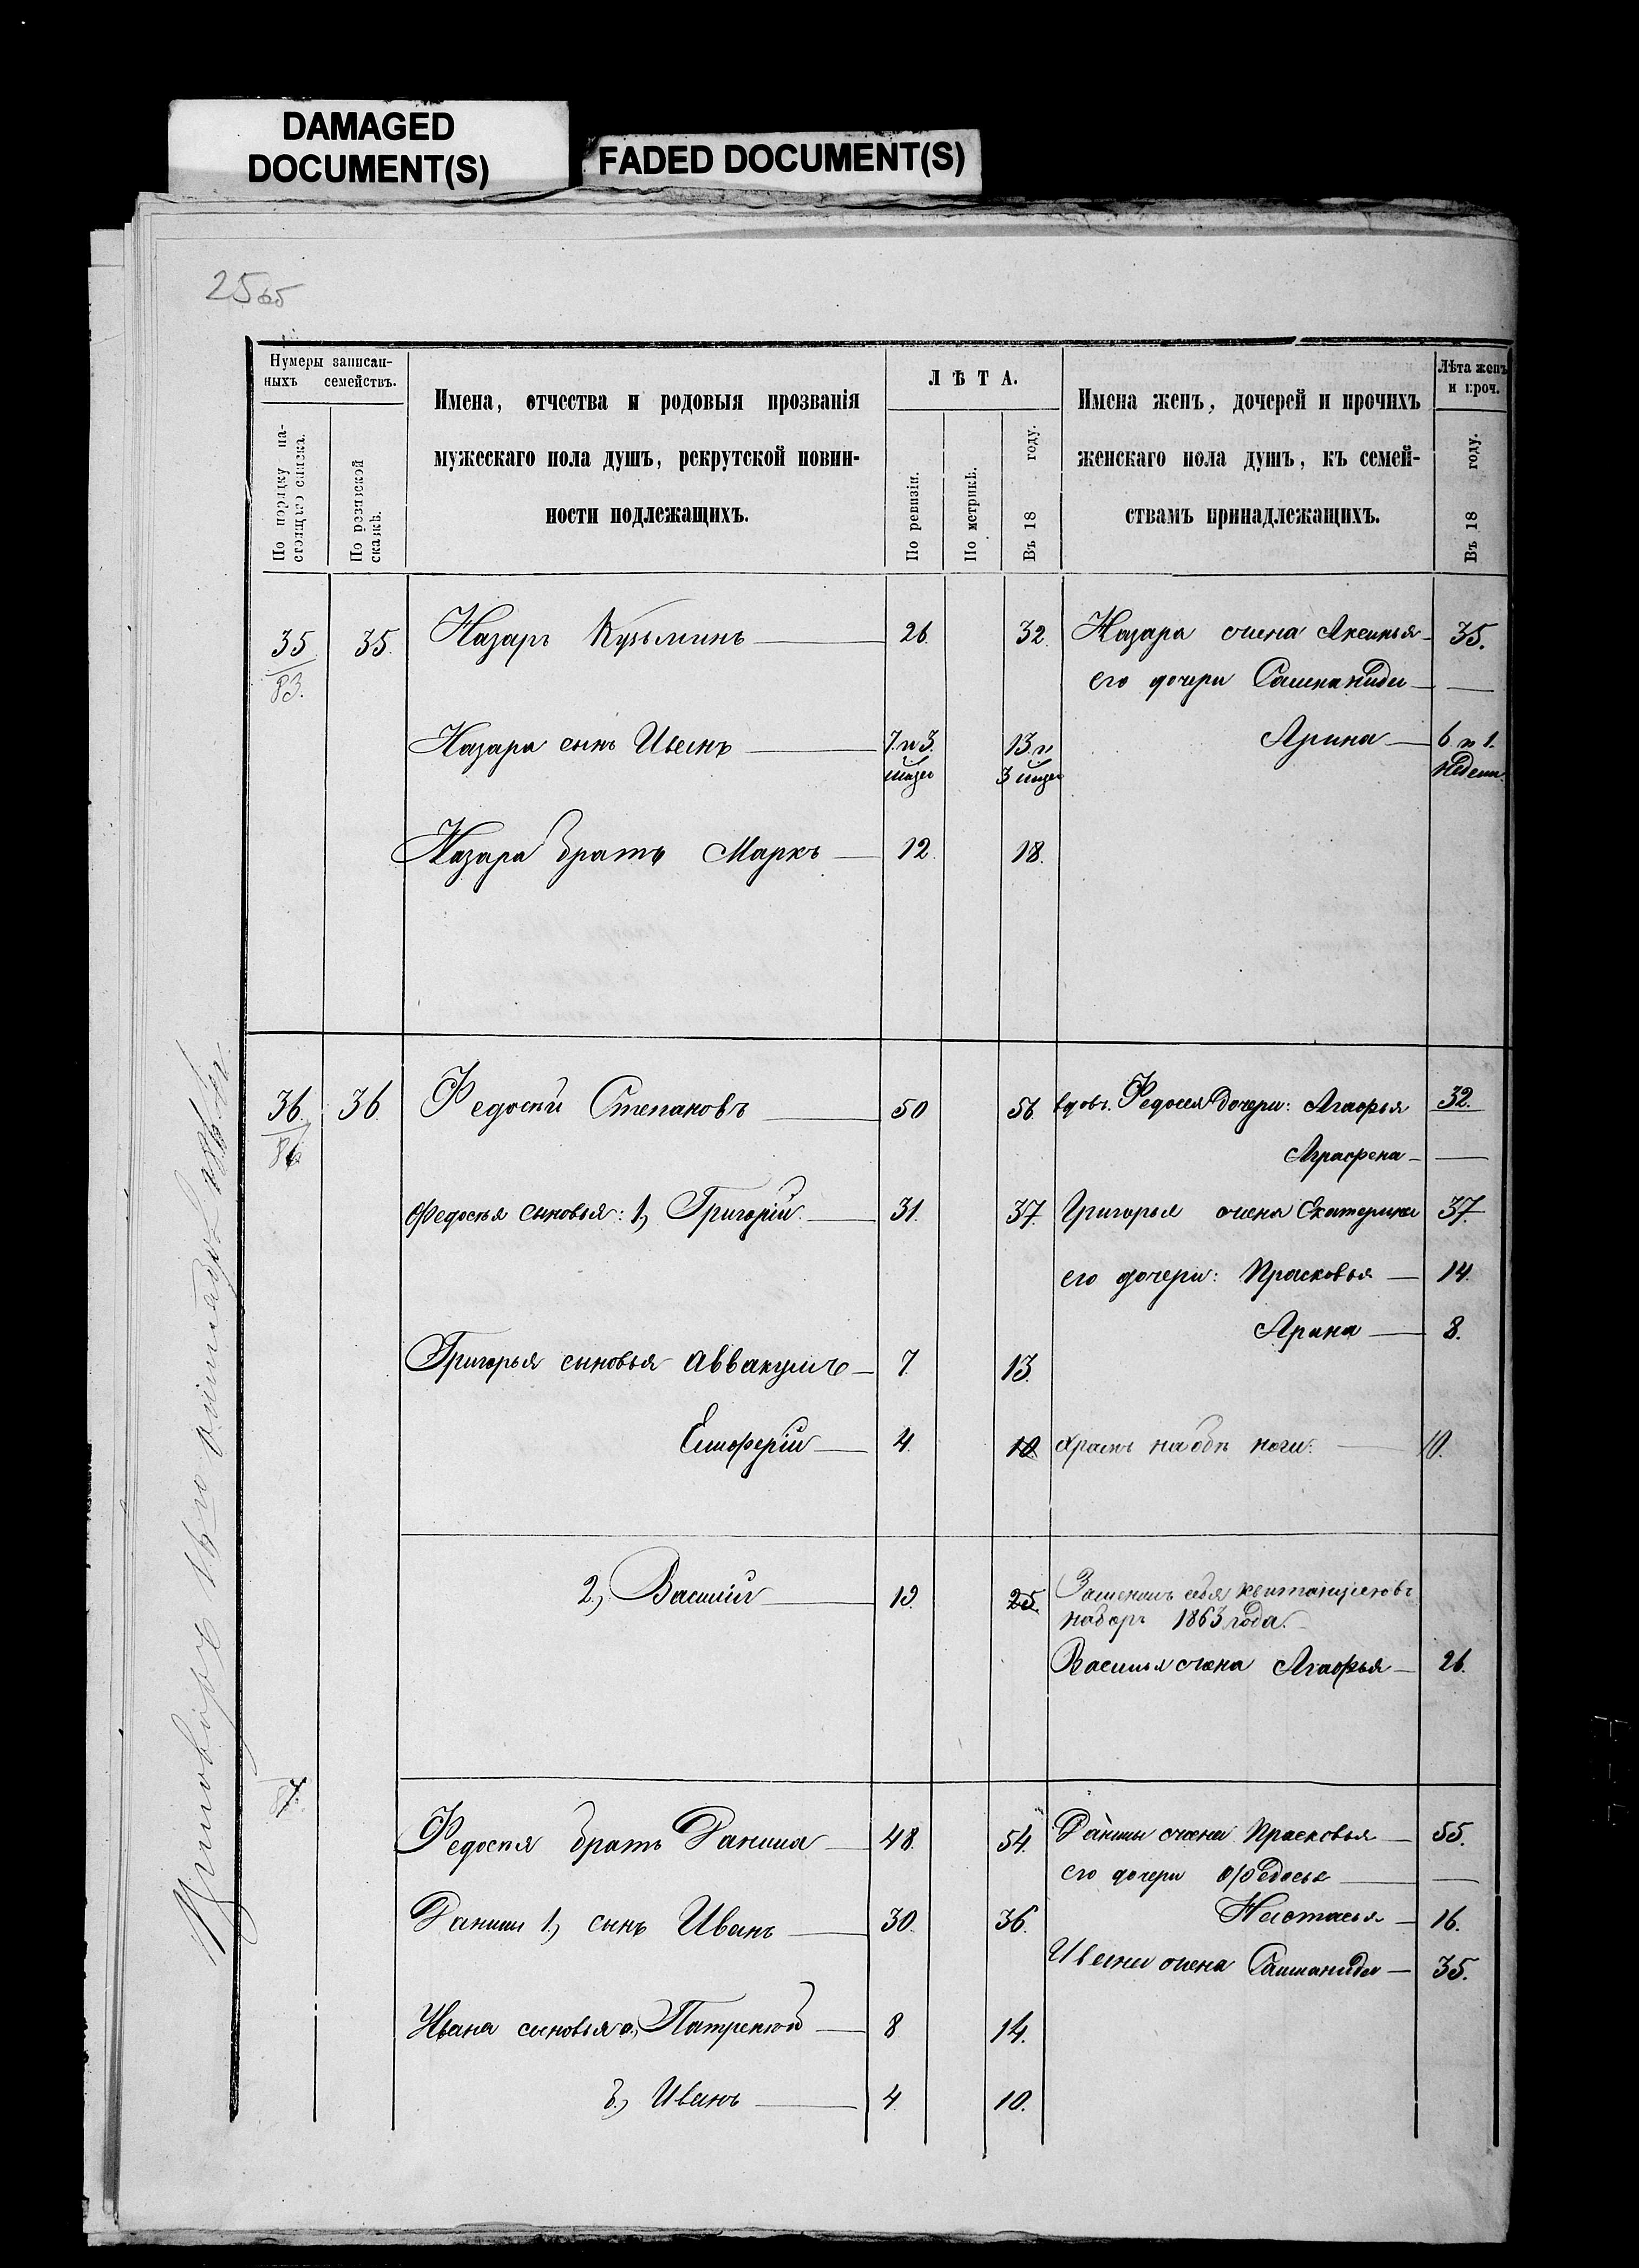 DAMAGED
DOCUMENT(S)
FADED DOCUMENT(S)
25 65
Нумеры записан-
ныхъ семействъ.
По порядку на-
стоящаго списка.
По ревизской
сказкѣ.
Имена, отчества и родовыя прозванія
мужескаго пола душъ, рекрутской повин-
ности подлежащихъ.
ЛѢТА.
По ревизіи.
По метрикѣ.
Въ 18 году.
Имена женъ, дочерей и прочихъ
женскаго пола душъ, къ семей-
ствамъ принадлежащихъ.
Лѣта женъ
и проч.
Въ 18 году.
35 35. Назаръ Кузьминъ 26. 32. Назара жена Аксинья 35.
83. его дочери Соломанида —
Назара сынъ Иванъ 7. и 3. 13. и Арина 6 и 1.
3 недели.
Назара братъ Маркъ 12. 18.
36. 36 Федосѣй Степановъ 50 56. вдов. Федосея дочери: Агафья 32.
86 Аграфена —
Федосѣя сыновья: 1, Григорій 31. 37. Григорья жена Екатерина 37.
его дочери: Прасковья 14.
Арина 8.
Григорья сыновья Аввакумъ 7. 13.
Елиферій 4. 10 храмъ на обѣ ноги. 10.
2, Василій 19. 25. квитанціею въ
наборъ 1863 года.
Василья жена Агафья 26.
Федосѣя братъ Данила 48. 54. Данилы жена Прасковья 55.
его дочери Федосья —
Данилы 1, сынъ Иванъ 30. 36. Настасья 16.
Ивана жена Соломанида 35.
Ивана сыновья а, Патрекей 8 14.
б, Иванъ 4 10.